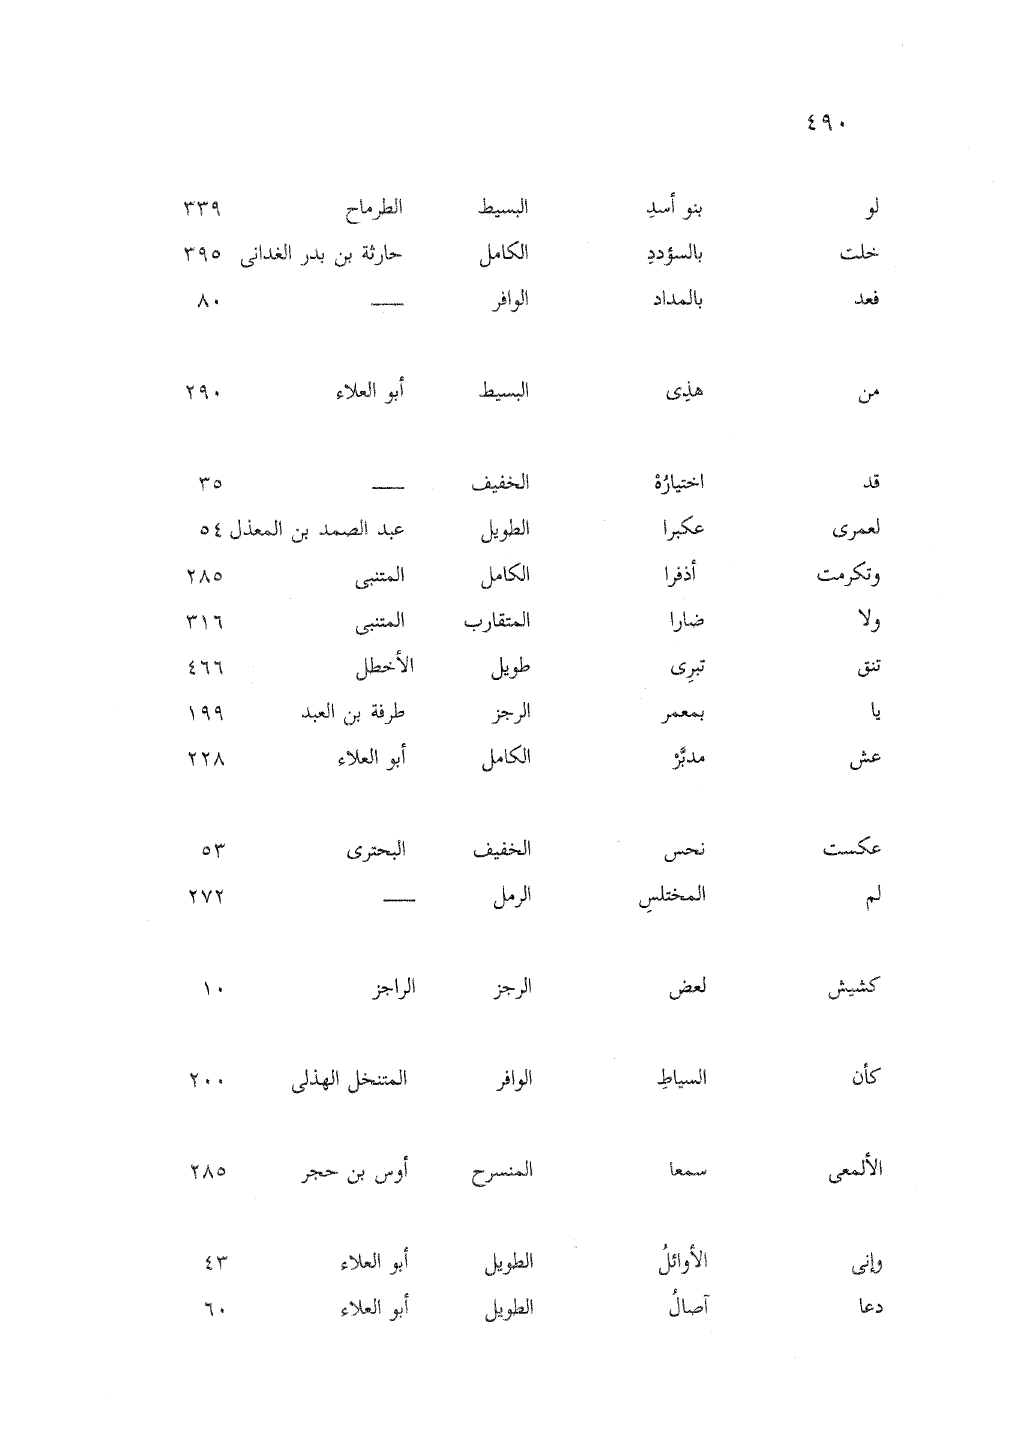 ٤٩٠
لو بنو أسدِ البسيط الطرماح ٣٣٩
خلت بالسؤددِ الكامل حارثة بن بدر الغدانى ٣٩٥
فعد بالمداد الوافر — ٨٠
من هذِى البسيط أبو العلاء ٢٩٠
قد اختيارُهْ الخفيف — ٣٥
لعمرى عكبرا الطويل عبد الصمد بن المعذل ٥٤
وتكرمت أذفرا الكامل المتنبى ٢٨٥
ولا ضارا المتقارب المتنبى ٣١٦
تنق تبرِى طويل الأخطل ٤٦٦
يا بمعمر الرجز طرفة بن العبد ١٩٩
عش مدبَّرْ الكامل أبو العلاء ٢٢٨
عكست نحس الخفيف البحترى ٥٣
لم المختلسِ الرمل — ٢٧٢
كشيش لعض الرجز الراجز ١٠
كأن السياطِ الوافر المتنخل الهذلى ٢٠٠
الألمعى سمعا المنسرح أوس بن حجر ٢٨٥
وإنى الأوائلُ الطويل أبو العلاء ٤٣
دعا آصالُ الطويل أبو العلاء ٦٠